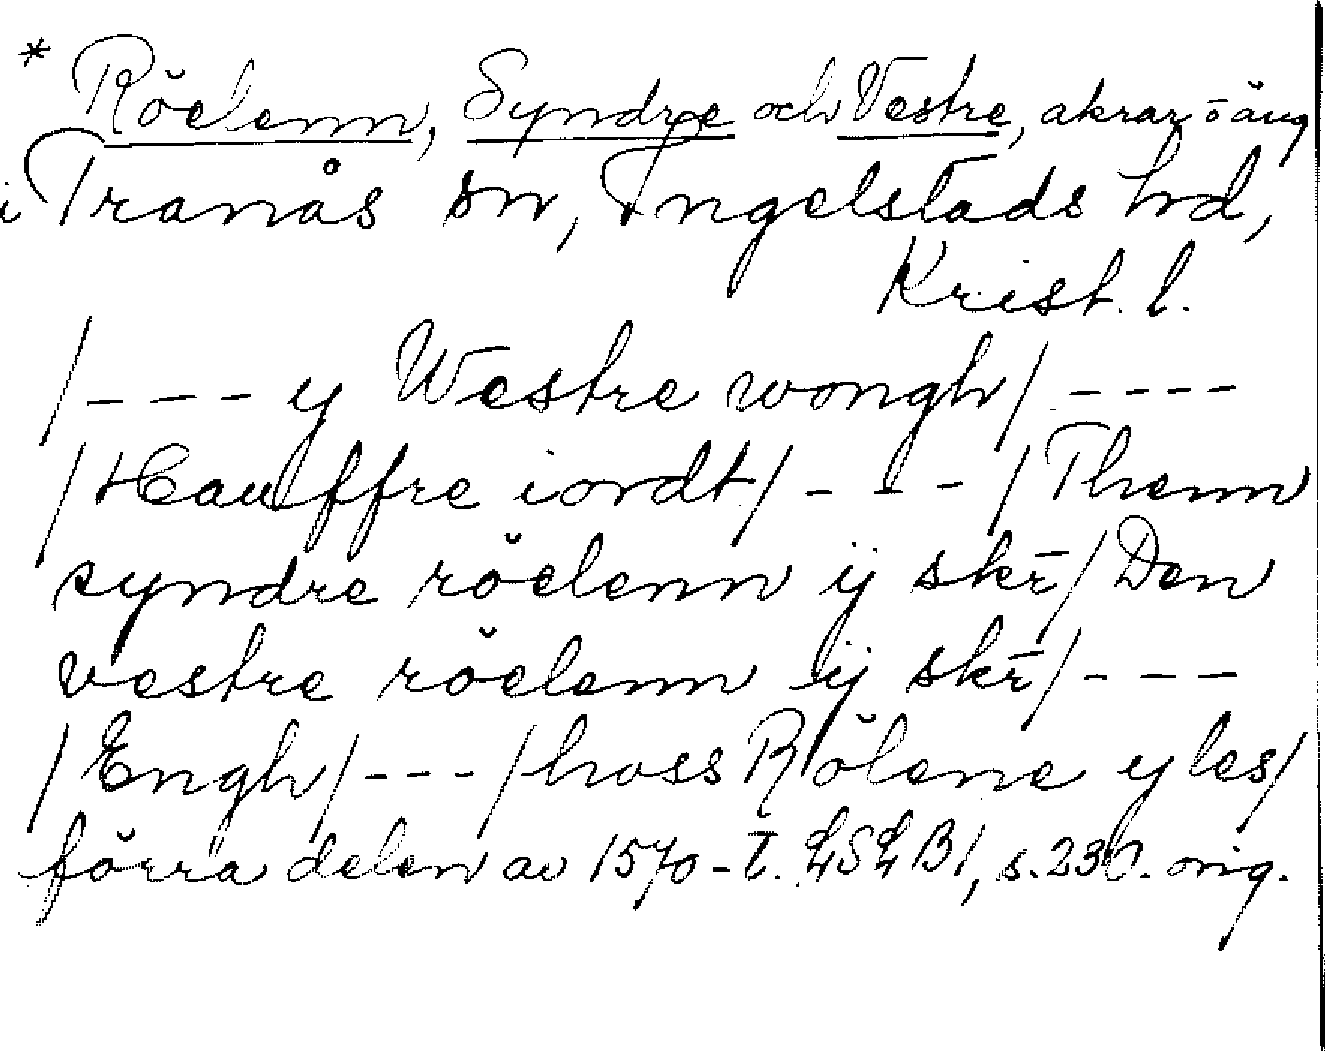 * Röelenn, Syndre och Vestre, akrar o äng
i Tranås sn, Ingelstads hd,
Krist. l.
/---y Westre wongh/----
/Hauffre iordt/---/Thenn
syndre röelenn ij skr̄/Den
vestre röelenn ij skr̄/---
/Engh/---/hoss Rölene y les/
förra delen av 1570-t. LSLB1, s. 230. orig.